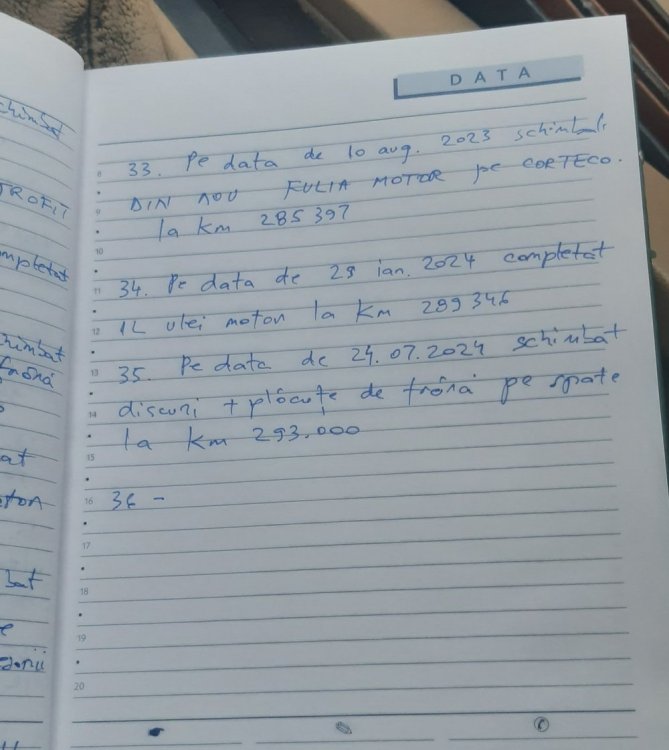 DATA
33. Pe data de 10 aug. 2023 schimbat
DIN NOU FULIA MOTOR pe CORTECO.
la km 285397
34. Pe data de 29 ian. 2024 completat
1L ulei motor la km 289346
35. Pe data de 24.07.2024 schimbat
discuri + plăcuțe de frână pe spate
la km 293.000
36 -
8
9
10
11
12
13
14
15
16
17
18
19
20
chimbat
ROFIT
mpletat
himbat
frână
at
otor
bat
e